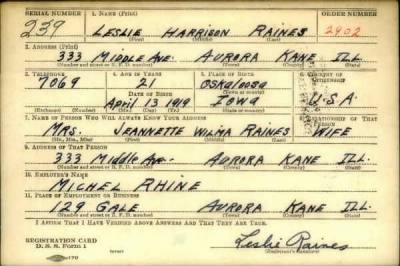 SERIAL NUMBER 1. NAME (Print) ORDER NUMBER
239 LESLIE HARRISON RAINES 2902
(First) (Middle) (Last)
2. ADDRESS (Print)
333 MIDDLE AVE. AURORA KANE ILL.
(Number and street or R. F. D. number) (Town) (County) (State)
3. TELEPHONE 4. AGE IN YEARS 5. PLACE OF BIRTH 6. COUNTRY OF CITIZENSHIP
7069 21 OSKALOOSA
DATE OF BIRTH (Town or county)
APRIL 13 1919 IOWA U.S.A.
(Exchange) (Number) (Mo.) (Day) (Yr.) (State or country)
7. NAME OF PERSON WHO WILL ALWAYS KNOW YOUR ADDRESS 8. RELATIONSHIP OF THAT PERSON
MRS. JEANNETTE WILMA RAINES WIFE
(Mr., Mrs., Miss) (First) (Middle) (Last)
9. ADDRESS OF THAT PERSON
333 MIDDLE AVE. AURORA KANE ILL.
(Number and street or R. F. D. number) (Town) (County) (State)
10. EMPLOYER'S NAME
MICHEL RHINE
11. PLACE OF EMPLOYMENT OR BUSINESS
129 GALE AURORA KANE ILL.
(Number and street or R. F. D. number) (Town) (County) (State)
I AFFIRM THAT I HAVE VERIFIED ABOVE ANSWERS AND THAT THEY ARE TRUE.
REGISTRATION CARD
D. S. S. Form 1
Leslie Raines
(Registrant's signature)